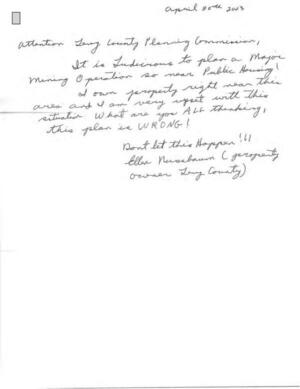 April 20th 2013
Attention Levy County Planning Commission,
It is Ludecrous to plan a Major
Mining Operation so near Public Housing!
I own property right near this
area and I am very upset with this
situation What are you ALL thinking,
this plan is WRONG!
Dont let this Happen!!!
Ellen Nussbaum (property
owner Levy County)